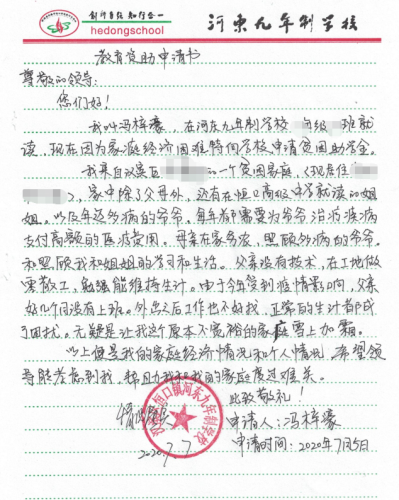 创新自信 知行合一
hedongschool
河东九年制学校
教育资助申请书
尊敬的领导:
您们好!
我叫冯梓豪,在河东九年制学校 班就
读,现在因为家庭经济困难特向学校申请贫困助学金。
我来自汉滨区 的一个贫困家庭,(现居住
),家中除了父母外,还有在恒口高级中学就读的姐
姐。以及年迈多病的爷爷。每年都需要为爷爷治疗疾病
支付高额的医疗费用。母亲在家务农,照顾多病的爷爷。
和照顾我和姐姐的学习和生活。父亲没有技术,在工地做
零散工,勉强能维持生计。由于今年受到疫情影响,父亲
好几个月没有上班。外出之后工作也不好找,正常的生计都成
了困扰。无疑是让我这个原本不宽裕的家庭雪上加霜。
以上便是我的家庭经济情况和个人情况,希望领
导能考虑到我,帮助我和我的家庭度过难关。
此致敬礼!
恒口镇河东九年制学校
申请人:冯梓豪
2020.7.7
申请时间:2020年7月5日